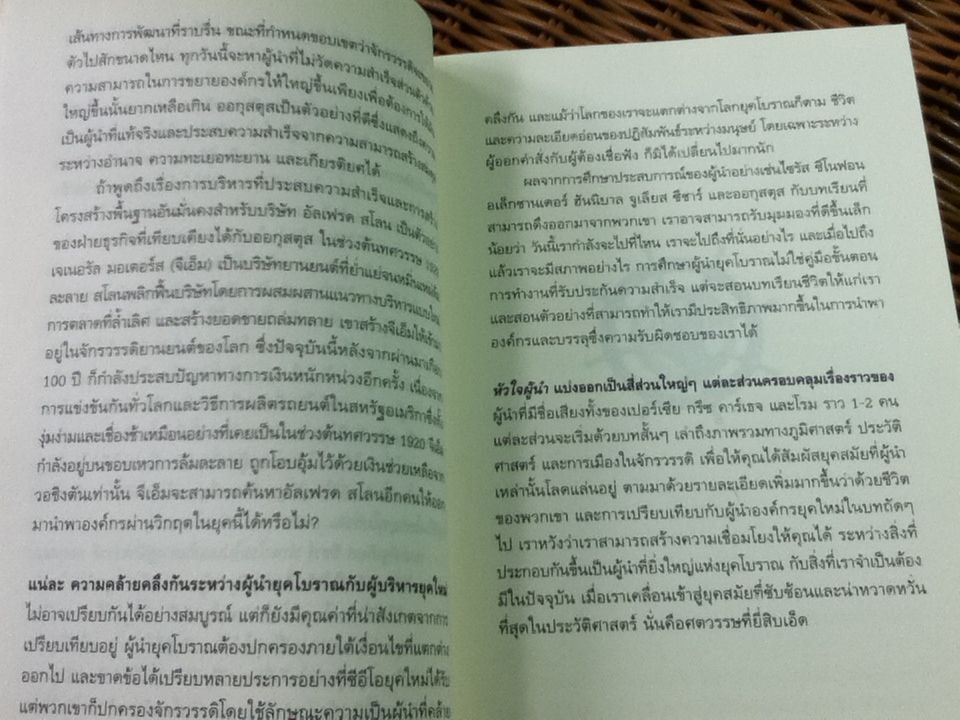 เส้นทางการพัฒนาที่ราบรื่น ขณะที่กำหนดขอบเขตว่าจักรวรรดิจะขยาย
ตัวไปสักขนาดไหน ทุกวันนี้จะหาผู้นำที่ไม่วัดความสำเร็จส่วนตัวด้วย
ความสามารถในการขยายองค์กรให้ใหญ่ขึ้นเพียงเพื่อต้องการให้มัน
ใหญ่ขึ้นนั้นยากเหลือเกิน ออกุสตุสเป็นตัวอย่างที่ดีซึ่งแสดงถึงความ
เป็นผู้นำที่แท้จริงและประสบความสำเร็จจากความสามารถสร้างสมดุล
ระหว่างอำนาจ ความทะเยอทะยาน และเกียรติยศได้
ถ้าพูดถึงเรื่องการบริหารที่ประสบความสำเร็จและการสร้าง
โครงสร้างพื้นฐานอันมั่นคงสำหรับบริษัท อัลเฟรด สโลน เป็นตัวอย่าง
ของฝ่ายธุรกิจที่เทียบเคียงได้กับออกุสตุส ในช่วงต้นทศวรรษ 1920
เจเนอรัล มอเตอร์ส (จีเอ็ม) เป็นบริษัทยานยนต์ที่ย่ำแย่จนเหมือน
ละลาย สโลนพลิกฟื้นบริษัทโดยการผสมผสานแนวทางบริหารแบบใหม่
การตลาดที่ล้ำเลิศ และสร้างยอดขายถล่มทลาย เขาสร้างจีเอ็มให้
อยู่ในจักรวรรดิยานยนต์ของโลก ซึ่งปัจจุบันนี้หลังจากผ่านมาเกือบ
100 ปี ก็กำลังประสบปัญหาทางการเงินหนักหน่วงอีกครั้ง เนื่องจาก
การแข่งขันกันทั่วโลกและวิธีการผลิตรถยนต์ในสหรัฐอเมริกาซึ่ง
งุ่มง่ามและเชื่องช้าเหมือนอย่างที่เคยเป็นในช่วงต้นทศวรรษ 1920 จีเอ็ม
กำลังอยู่บนขอบเหวการล้มละลาย ถูกโอบอุ้มไว้ด้วยเงินช่วยเหลือจาก
วอชิงตันเท่านั้น จีเอ็มจะสามารถค้นหาอัลเฟรด สโลนอีกคนให้ออก
มานำพาองค์กรผ่านวิกฤตในยุคนี้ได้หรือไม่?
แน่ละ ความคล้ายคลึงกันระหว่างผู้นำยุคโบราณกับผู้บริหารยุคใหม่
ไม่อาจเปรียบกันได้อย่างสมบูรณ์ แต่ก็ยังมีคุณค่าที่น่าสังเกตจากการ
เปรียบเทียบอยู่ ผู้นำยุคโบราณต้องปกครองภายใต้เงื่อนไขที่แตกต่าง
ออกไป และขาดข้อได้เปรียบหลายประการอย่างที่ซีอีโอยุคใหม่ได้รับ
แต่พวกเขาก็ปกครองจักรวรรดิโดยใช้ลักษณะความเป็นผู้นำที่คล้าย
คลึงกัน และแม้ว่าโลกของเราจะแตกต่างจากโลกยุคโบราณก็ตาม ชีวิต
และความละเอียดอ่อนของปฏิสัมพันธ์ระหว่างมนุษย์ โดยเฉพาะระหว่าง
ผู้ออกคำสั่งกับผู้ต้องเชื่อฟัง ก็มิได้เปลี่ยนไปมากนัก
ผลจากการศึกษาประสบการณ์ของผู้นำอย่างเช่นไซรัส ซีโนฟอน
อเล็กซานเดอร์ ฮันนิบาล จูเลียส ซีซาร์ และออกุสตุส กับบทเรียนที่
สามารถดึงออกมาจากพวกเขา เราอาจสามารถรับมุมมองที่ดีขึ้นเล็ก
น้อยว่า วันนี้เรากำลังจะไปที่ไหน เราจะไปถึงที่นั่นอย่างไร และเมื่อไปถึง
แล้วเราจะมีสภาพอย่างไร การศึกษาผู้นำยุคโบราณไม่ใช่คู่มือขั้นตอน
การทำงานที่รับประกันความสำเร็จ แต่จะสอนบทเรียนชีวิตให้แก่เรา
และสอนตัวอย่างที่สามารถทำให้เรามีประสิทธิภาพมากขึ้นในการนำพา
องค์กรและบรรลุซึ่งความรับผิดชอบของเราได้
หัวใจผู้นำ แบ่งออกเป็นสี่ส่วนใหญ่ๆ แต่ละส่วนครอบคลุมเรื่องราวของ
ผู้นำที่มีชื่อเสียงทั้งของเปอร์เซีย กรีซ คาร์เธจ และโรม ราว 1-2 คน
แต่ละส่วนจะเริ่มด้วยบทสั้นๆ เล่าถึงภาพรวมทางภูมิศาสตร์ ประวัติ
ศาสตร์ และการเมืองในจักรวรรดิ เพื่อให้คุณได้สัมผัสยุคสมัยที่ผู้นำ
เหล่านั้นโลดแล่นอยู่ ตามมาด้วยรายละเอียดเพิ่มมากขึ้นว่าด้วยชีวิต
ของพวกเขา และการเปรียบเทียบกับผู้นำองค์กรยุคใหม่ในบทถัดๆ
ไป เราหวังว่าเราสามารถสร้างความเชื่อมโยงให้คุณได้ ระหว่างสิ่งที่
ประกอบกันขึ้นเป็นผู้นำที่ยิ่งใหญ่แห่งยุคโบราณ กับสิ่งที่เราจำเป็นต้อง
มีในปัจจุบัน เมื่อเราเคลื่อนเข้าสู่ยุคสมัยที่ซับซ้อนและน่าหวาดหวั่น
ที่สุดในประวัติศาสตร์ นั่นคือศตวรรษที่ยี่สิบเอ็ด